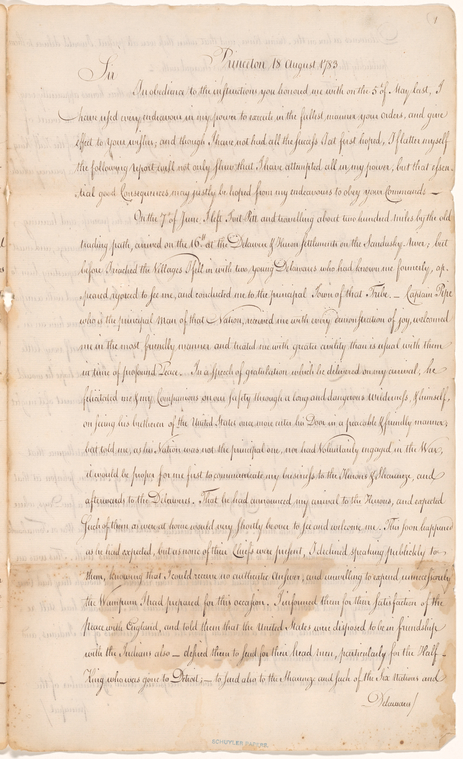 1
Princeton 18 August 1783
Sir
In obedience to the instructions you honored me with on the 5th of May last, I
have used every endeavour in my power to execute in the fullest manner your orders, and give
effect to your wishes; and though I have not had all the success I at first hoped, I flatter myself
the following report will not only shew that I have attempted all in my power, but that essen-
tial good Consequences may justly be hoped from my endeavours to obey your Commands —
On the 7th of June I left Fort Pitt and travelling about two hundred miles by the old
trading path, arrived on the 16th at the Delawar & Huron Settlements on the Sandusky River; but
before I reached the Villages I fell in with two young Delawares who had known me formerly, ap-
peared rejoiced to see me, and conducted me to the principal Town of that Tribe. — Captain Pipe
who is the principal Man of that Nation, received me with every demonstration of joy, welcomed
me in the most friendly manner and treated me with greater civility than is usual with them
in time of profound Peace. In a speech of gratulation which he delivered on my arrival, he
felicitated me & my Companions on our safety through a long and dangerous Wilderness, & himself,
on seing his brethren of the United States once more enter his Door in a peaceable & friendly manner,
but told me, as his Nation was not the principal one, nor had Voluntarily engaged in the War,
it would be proper for me first to communicate my business to the Hurons & Shawanize, and
afterwards to the Delawares. That he had announced my arrival to the Hurons, and expected
such of them as were at home would very shortly be over to see and welcome me. This soon happened
as he had expected, but as none of their Chiefs were present, I declined speaking publickly to
them, knowing that I could receive no authentic Answer, and unwilling to expend unnecessarily
the Wampum I had prepared for this occasion. I informed them for their Satisfaction of the
Peace with England, and told them that the United States were disposed to be in friendship
with the Indians also — desired them to send for their head men, particularly for the Half-
King who was gone to Detroit; — to send also to the Shawanize and such of the Six Nations and
Delawares/